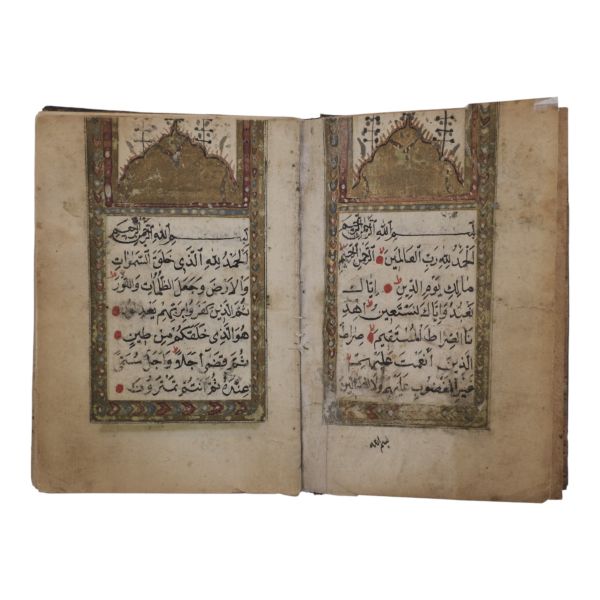 بسم الله الرحمن الرحيم
الحمد لله رب العالمين الرحمن الرحيم
مالك يوم الدين اياك
نعبد واياك نستعين اهد
نا الصراط المستقيم صراط
الذين انعمت عليهم
غير المغضوب عليهم ولا الضالين
بسم الله الرحمن الرحيم
الحمد لله الذي خلق السموات
والارض وجعل الظلمات والنور
ثم الذين كفروا بربهم يعدلون
هو الذي خلقكم من طين
ثم قضى اجلا واجل مسمى
عنده ثم انتم تمترون